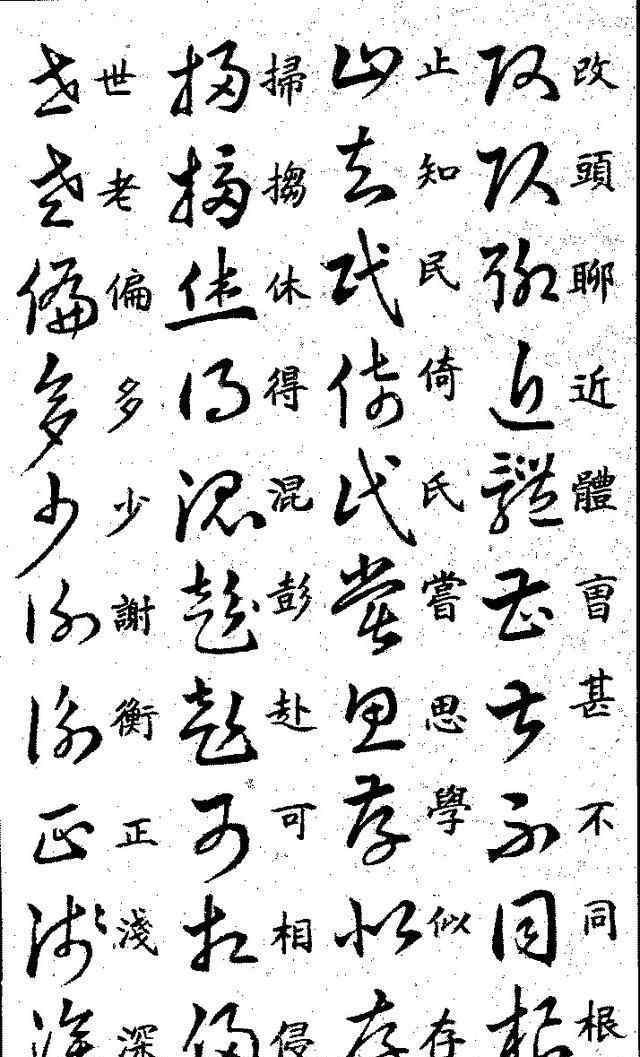 改頭聊近體曺甚不同根
止知民倚氏嘗思學似存
掃搊休得混彭赴可相侵
世老偏多少謝衡正淺深